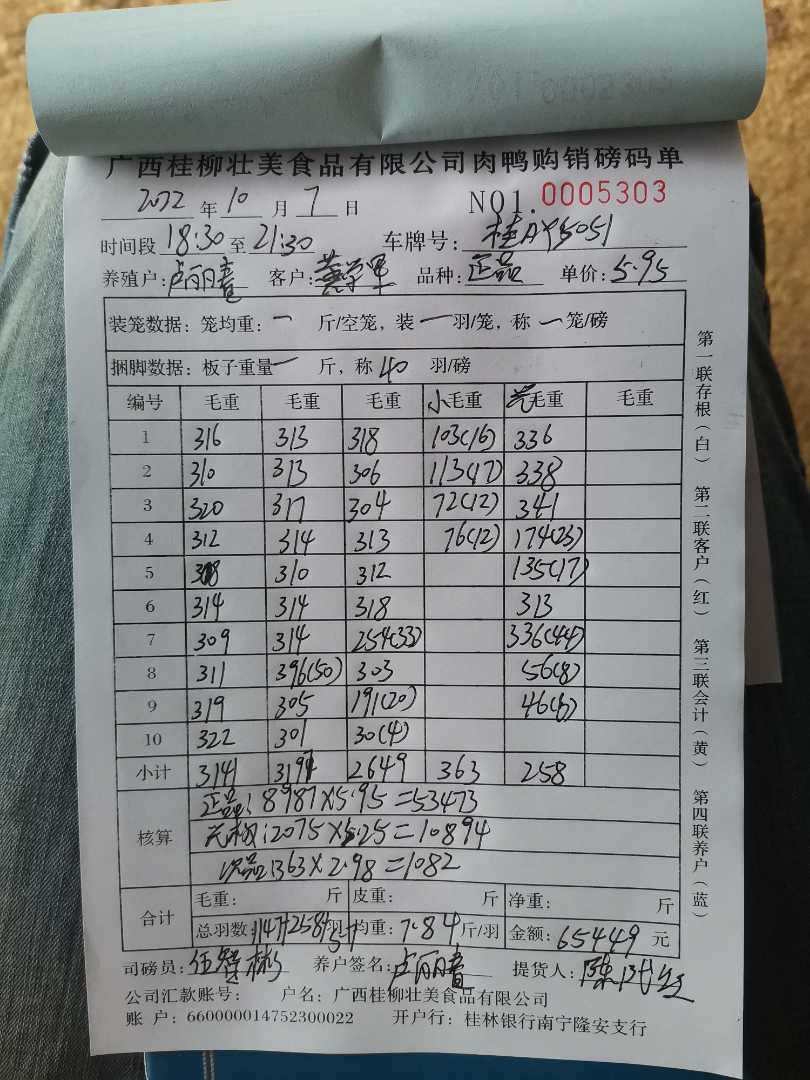 广西桂柳壮美食品有限公司肉鸭购销磅码单
2022 年 10 月 7 日 NO1. 0005303
时间段 18:30 至 21:30 车牌号: 桂AY5051
养殖户: 卢丽春 客户: 黄学军 品种: 正品 单价: 5.95
装笼数据: 笼均重: 一 斤/空笼, 装 一 羽/笼, 称 一 笼/磅
捆脚数据: 板子重量 一 斤, 称 40 羽/磅
编号 毛重 毛重 毛重 小毛重 毛重 毛重
1 316 313 318 103(16) 336
2 310 313 306 113(17) 338
3 320 317 304 72(12) 341
4 312 314 313 76(12) 174(23)
5 308 310 312 135(17)
6 314 314 318 313
7 309 314 254(33) 336(44)
8 311 396(50) 303 56(8)
9 319 305 191(20) 46(6)
10 322 301 30(4)
小计 3141 3197 2649 363 258
核算
正品: 8987×5.95=53473
毛: 2075×5.25=10894
次品: 363×2.98=1082
合计 毛重: 斤 皮重: 斤 净重: 斤
总羽数: 1147+258+57 羽 均重: 7.84 斤/羽 金额: 65449 元
司磅员: 伍智彬 养户签名: 卢丽春 提货人: 陈
公司汇款账号: 户名: 广西桂柳壮美食品有限公司
账 户: 660000014752300022 开户行: 桂林银行南宁隆安支行
第一联存根(白) 第二联客户(红) 第三联会计(黄) 第四联养户(蓝)